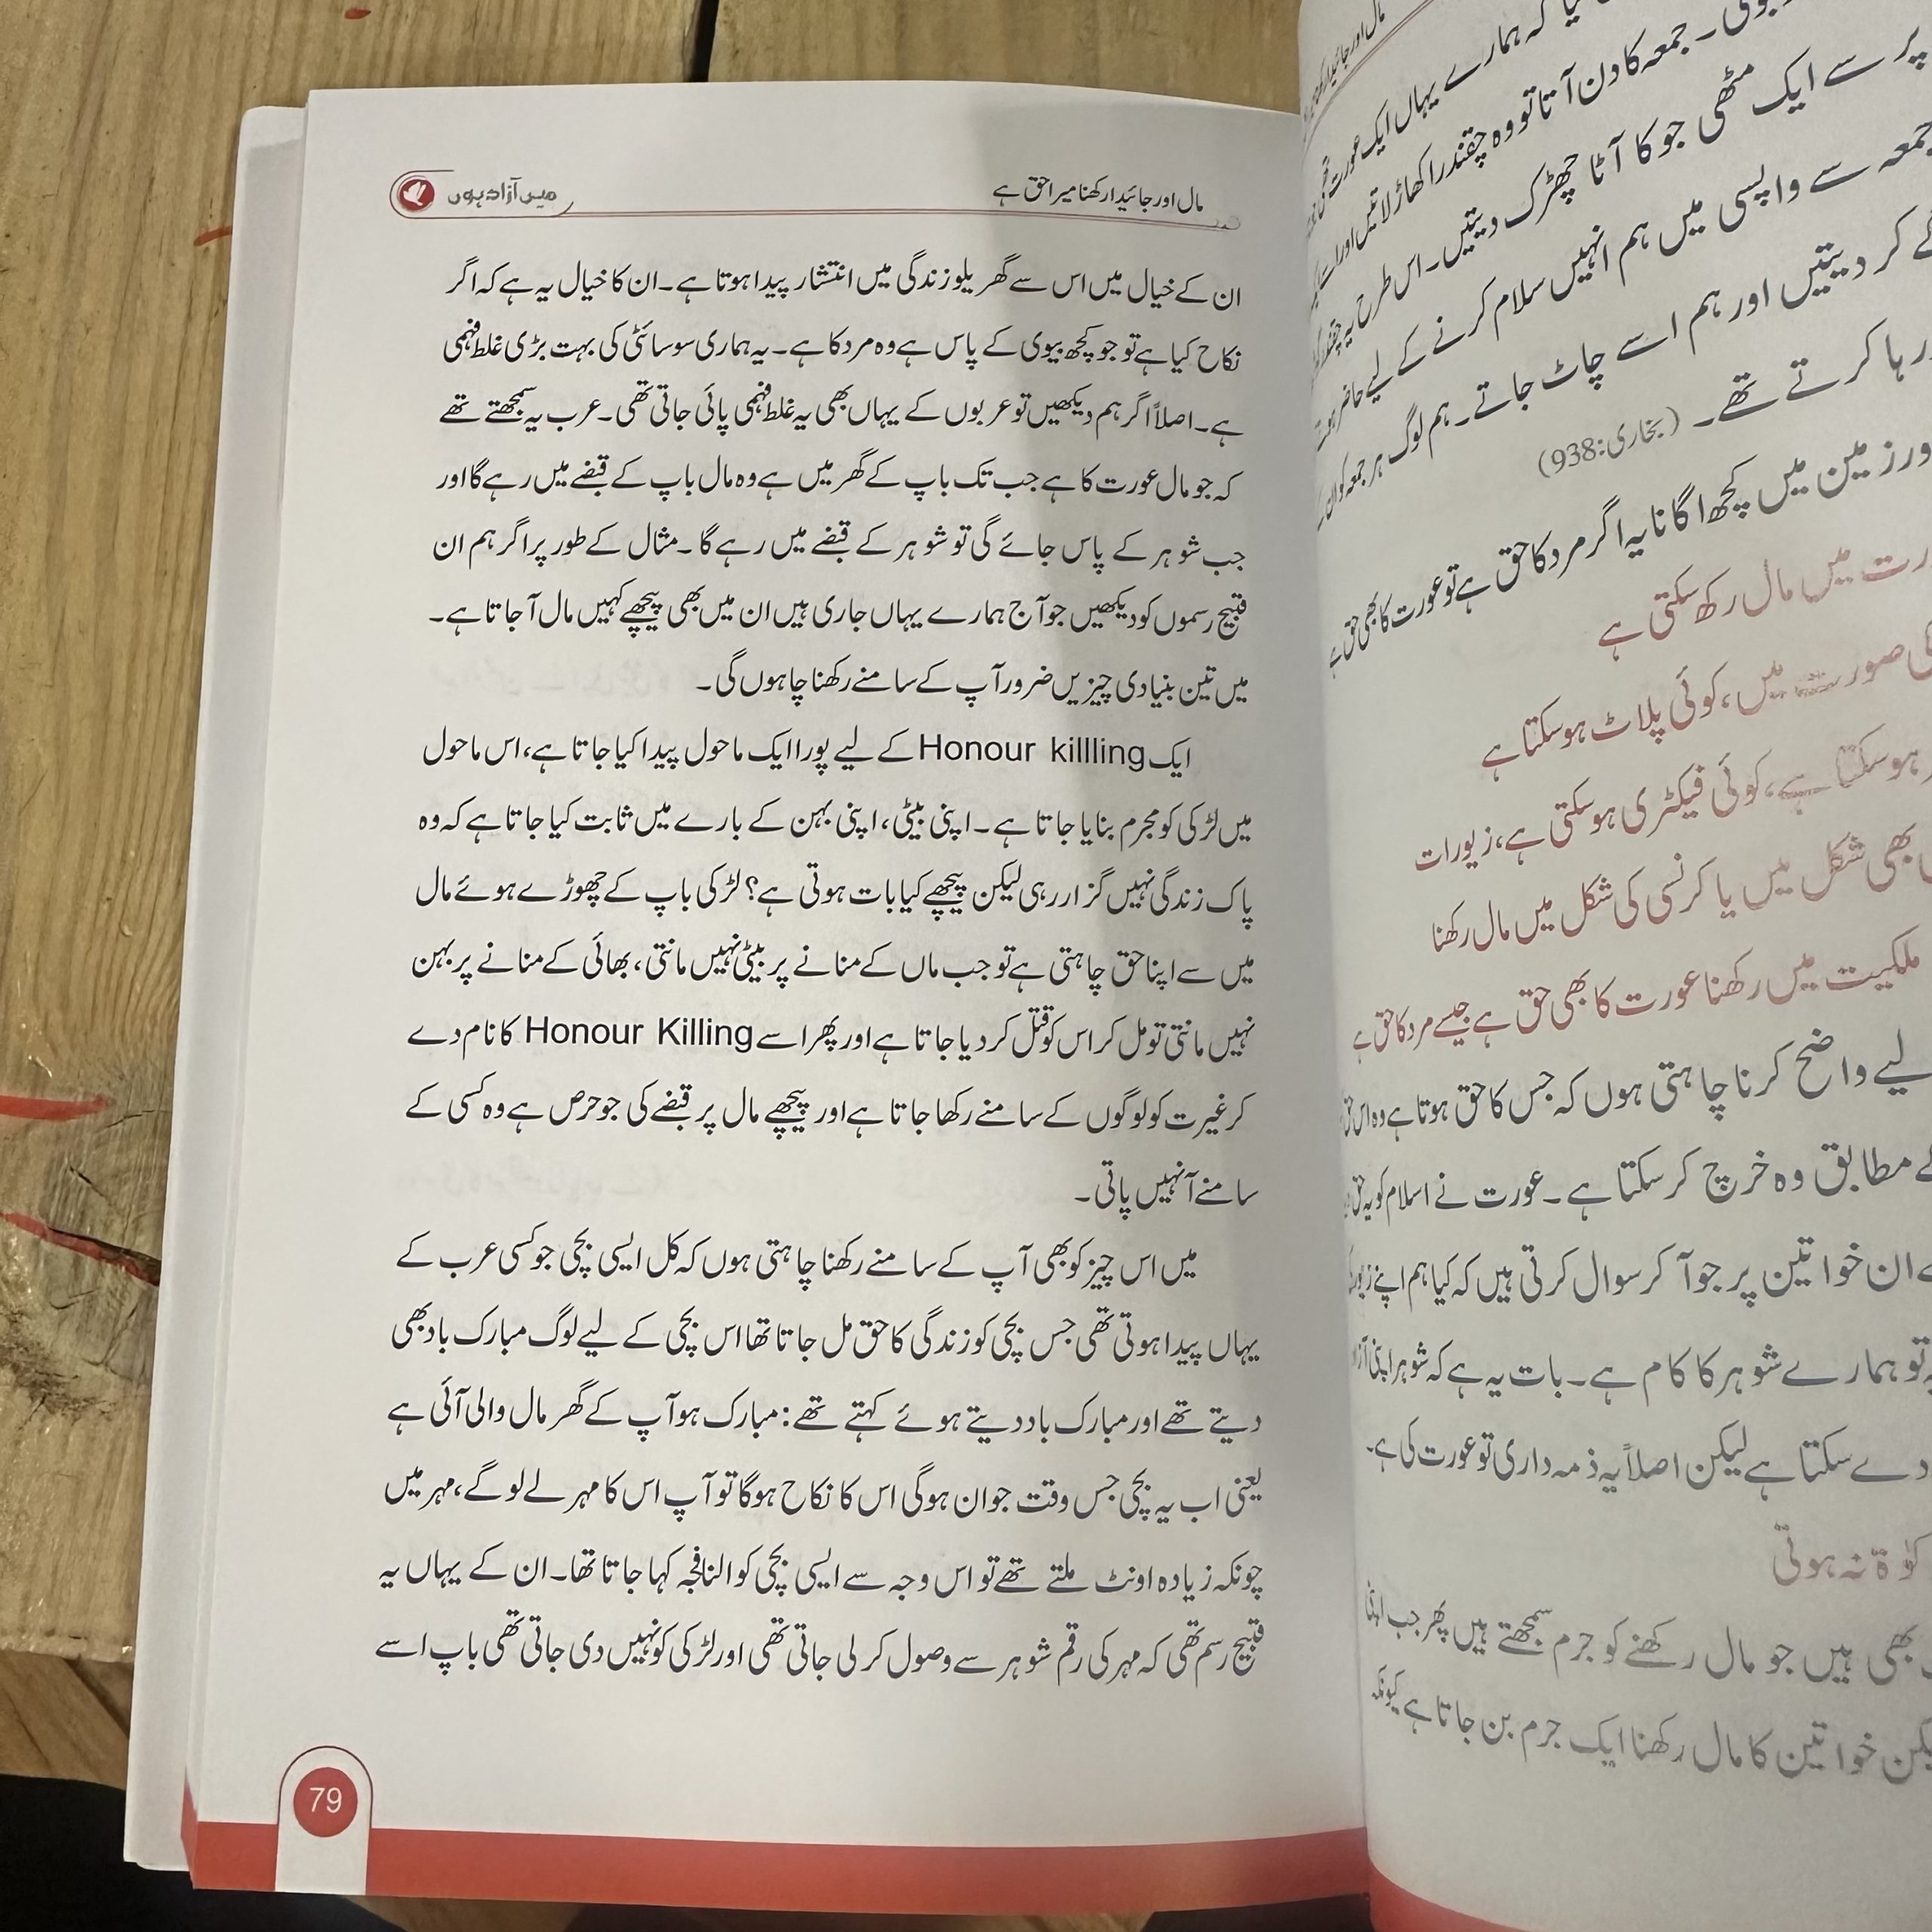 مال اور جائیداد رکھنا میرا حق ہے
میں آزاد ہوں
ان کے خیال میں اس سے گھریلو زندگی میں انتشار پیدا ہوتا ہے۔ ان کا خیال یہ ہے کہ اگر
نکاح کیا ہے تو جو کچھ بیوی کے پاس ہے وہ مرد کا ہے۔ یہ ہماری سوسائٹی کی بہت بڑی غلط فہمی
ہے۔ اصلاً اگر ہم دیکھیں تو عربوں کے یہاں بھی یہ غلط فہمی پائی جاتی تھی۔ عرب یہ سمجھتے تھے
کہ جو مال عورت کا ہے جب تک باپ کے گھر میں ہے وہ مال باپ کے قبضے میں رہے گا اور
جب شوہر کے پاس جائے گی تو شوہر کے قبضے میں رہے گا۔ مثال کے طور پر اگر ہم ان
قبیح رسموں کو دیکھیں جو آج ہمارے یہاں جاری ہیں ان میں بھی پیچھے کہیں مال آ جاتا ہے۔
میں تین بنیادی چیزیں ضرور آپ کے سامنے رکھنا چاہوں گی۔
ایک Honour killling کے لیے پورا ایک ماحول پیدا کیا جاتا ہے، اس ماحول
میں لڑکی کو مجرم بنایا جاتا ہے۔ اپنی بیٹی، اپنی بہن کے بارے میں ثابت کیا جاتا ہے کہ وہ
پاک زندگی نہیں گزار رہی لیکن پیچھے کیا بات ہوتی ہے؟ لڑکی باپ کے چھوڑے ہوئے مال
میں سے اپنا حق چاہتی ہے تو جب ماں کے منانے پر بیٹی نہیں مانتی، بھائی کے منانے پر بہن
نہیں مانتی تو مل کر اس کو قتل کر دیا جاتا ہے اور پھر اسے Honour Killing کا نام دے
کر غیرت کو لوگوں کے سامنے رکھا جاتا ہے اور پیچھے مال پر قبضے کی جو حرص ہے وہ کسی کے
سامنے آ نہیں پاتی۔
میں اس چیز کو بھی آپ کے سامنے رکھنا چاہتی ہوں کہ کل ایسی بچی جو کسی عرب کے
یہاں پیدا ہوتی تھی جس بچی کو زندگی کا حق مل جاتا تھا اس بچی کے لیے لوگ مبارک باد بھی
دیتے تھے اور مبارک باد دیتے ہوئے کہتے تھے: مبارک ہو آپ کے گھر مال والی آئی ہے
یعنی اب یہ بچی جس وقت جوان ہوگی اس کا نکاح ہوگا تو آپ اس کا مہر لے لو گے، مہر میں
چونکہ زیادہ اونٹ ملتے تھے تو اس وجہ سے ایسی بچی کو النافجہ کہا جاتا تھا۔ ان کے یہاں یہ
قبیح رسم تھی کہ مہر کی رقم شوہر سے وصول کر لی جاتی تھی اور لڑکی کو نہیں دی جاتی تھی باپ اسے
79
کہ ہمارے یہاں ایک عورت تھی
جمعہ کا دن آتا تو وہ چقندر اکھاڑ لاتیں اور اسے
پر سے ایک مٹھی جو کا آٹا چھڑک دیتیں۔ اس طرح یہ چقندر
جمعہ سے واپسی میں ہم انہیں سلام کرنے کے لیے حاضر ہوتے
کر دیتیں اور ہم اسے چاٹ جاتے۔ ہم لوگ ہر جمعہ کو ان
رہا کرتے تھے۔ (بخاری: 938)
اور زمین میں کچھ اگانا یہ اگر مرد کا حق ہے تو عورت کا بھی حق ہے
میں مال رکھ سکتی ہے
صورت میں، کوئی پلاٹ ہو سکتا ہے
ہو سکتا ہے، کوئی فیکٹری ہو سکتی ہے، زیورات
بھی شکل میں یا کرنسی کی شکل میں مال رکھنا
ملکیت میں رکھنا عورت کا بھی حق ہے جیسے مرد کا حق ہے
لیے واضح کرنا چاہتی ہوں کہ جس کا حق ہوتا ہے وہ اس
مطابق وہ خرچ کر سکتا ہے۔ عورت نے اسلام کو یہ حق
ان خواتین پر جو آ کر سوال کرتی ہیں کہ کیا ہم اپنے زیور
تو ہمارے شوہر کا کام ہے۔ بات یہ ہے کہ شوہر اپنی
دے سکتا ہے لیکن اصلاً یہ ذمہ داری تو عورت کی ہے۔
نہ ہوتی
بھی ہیں جو مال رکھنے کو جرم سمجھتے ہیں پھر جب
خواتین کا مال رکھنا ایک جرم بن جاتا ہے کیونکہ